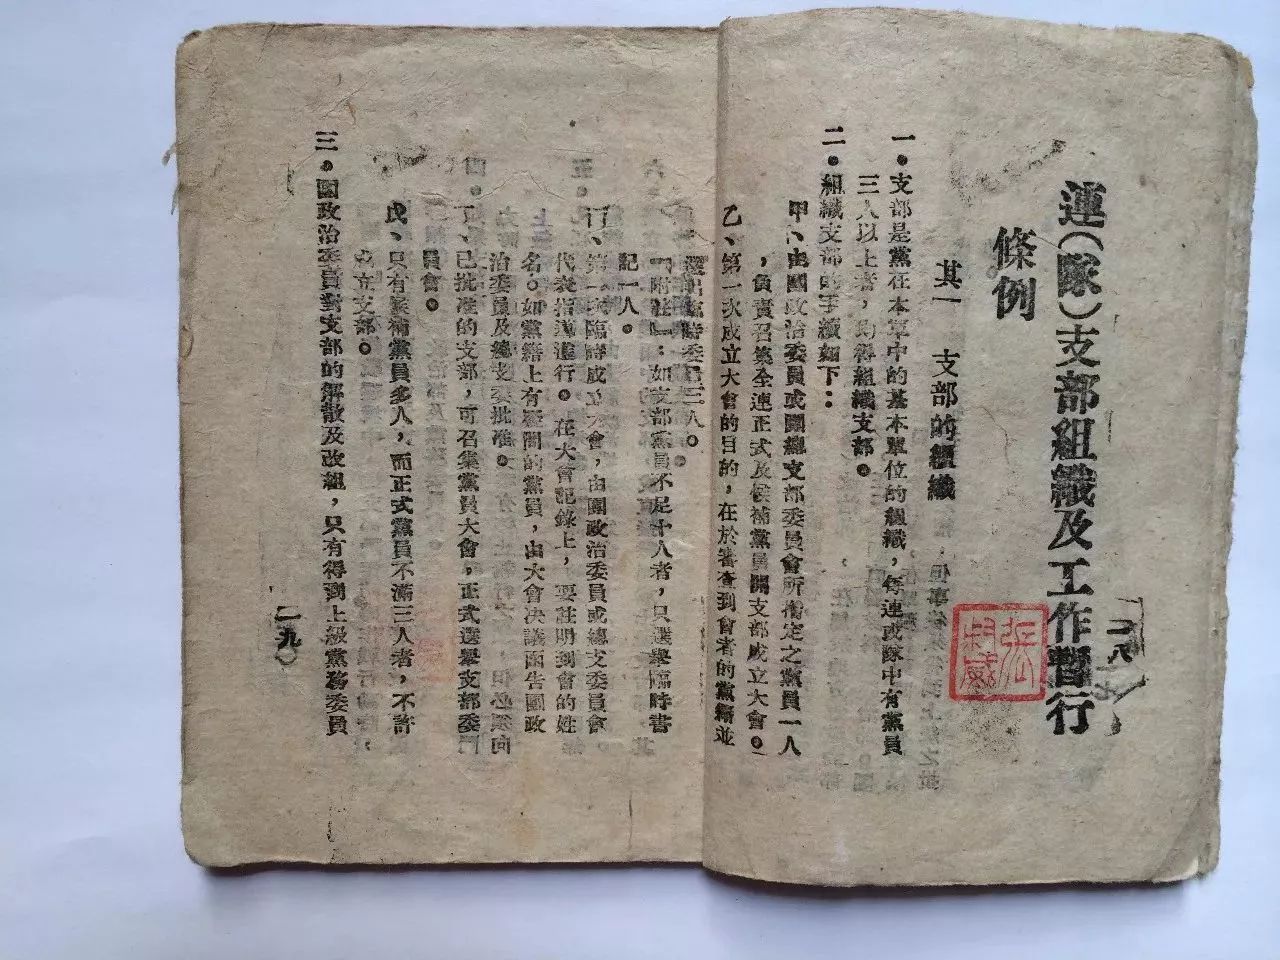 連（隊）支部組織及工作暫行
條例
其一　支部的組織
一・支部是黨在本軍中的基本單位的組織，每連或隊中有黨員
三人以上者，均得組織支部。
二・組織支部的手續如下：
甲、由團政治委員或團總支部委員會所指定之黨員一人
，負責召集全連正式及候補黨員開支部成立大會。
乙、第一次成立大會的目的，在於審查到會者的黨籍並
一八
選舉臨時委員三人。
「附註」：如支部黨員不足十人者，只選舉臨時書
記一人。
丙、第一次臨時成立大會，由團政治委員或總支委員會
代表指導進行。在大會記錄上，要註明到會的姓
名。如黨籍上有疑問的黨員，由大會決議函告團政
治委員及總支委批准。
丁、已批准的支部，可召集黨員大會，正式選舉支部委
員會。
戊、只有候補黨員多人，而正式黨員不滿三人者，不許
成立支部。
三・團政治委員對支部的解散及改組，只有得到上級黨務委員
一九